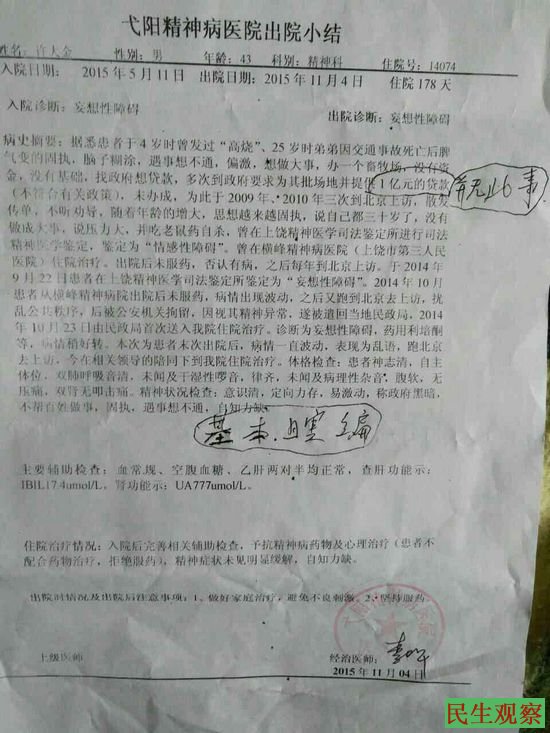 弋阳精神病医院出院小结
姓名：许大金 性别：男 年龄：43 科别：精神科 住院号：14074
入院日期： 2015年5月11日 出院日期：2015年11月4日 住院178天
入院诊断：妄想性障碍 出院诊断：妄想性障碍
病史摘要：据悉患者于4岁时曾发过“高烧”、25岁时弟弟因交通事故死亡后脾
气变的固执，脑子糊涂，遇事想不通，偏激，想做大事，办一个畜牧场，没有资
金，没有基础，找政府想贷款，多次到政府要求为其批场地并提供1亿元的贷款
（不符合有关政策），未办成，为此于2009年、2010年三次到北京上访，散发
传单，不听劝导，随着年龄的增大，思想越来越固执，说自己都三十岁了，没有
做成大事，说压力大，并吃老鼠药自杀，曾在上饶精神医学司法鉴定所进行司法
精神医学鉴定，鉴定为“情感性障碍”。曾在横峰精神病医院（上饶市第三人民
医院）住院治疗。出院后未服药，否认有病，之后每年到北京上访。于2014年
9月22日患者在上饶精神医学司法鉴定所鉴定为“妄想性障碍”。2014年10月
患者从横峰精神病院出院后未服药，病情出现波动，之后又跑到北京去上访，扰
乱公共秩序，后被公安机关拘留，因视其精神异常，遂被遣回当地民政局，2014
年10月23日由民政局首次送入我院住院治疗。诊断为妄想性障碍，药用利培酮
等，病情稍好转。本次为患者末次出院后，病情一直波动，表现为乱语，跑北京
去上访，今在相关领导的陪同下到我院住院治疗。体格检查：患者神志清，自主
体位，双肺呼吸音清，未闻及干湿性啰音，律齐，未闻及病理性杂音，腹软，无
压痛，双肾无叩击痛。精神状况检查：意识清，定向力存，易激动，称政府黑暗，
不帮百姓做事，固执，遇事想不通，自知力缺。
并无此事
基本瞎编
主要辅助检查：血常规、空腹血糖、乙肝两对半均正常，查肝功能示：
IBIL17.4umol/L。肾功能示：UA777umol/L。
住院治疗情况：入院后完善相关辅助检查，予抗精神病药物及心理治疗（患者不
配合药物治疗，拒绝服药），精神症状未见明显缓解，自知力缺。
出院时情况及出院后注意事项：1、做好家庭治疗，避免不良刺激。2、坚持服药。
上级医师 经治医师：
2015年11月04日
民生观察